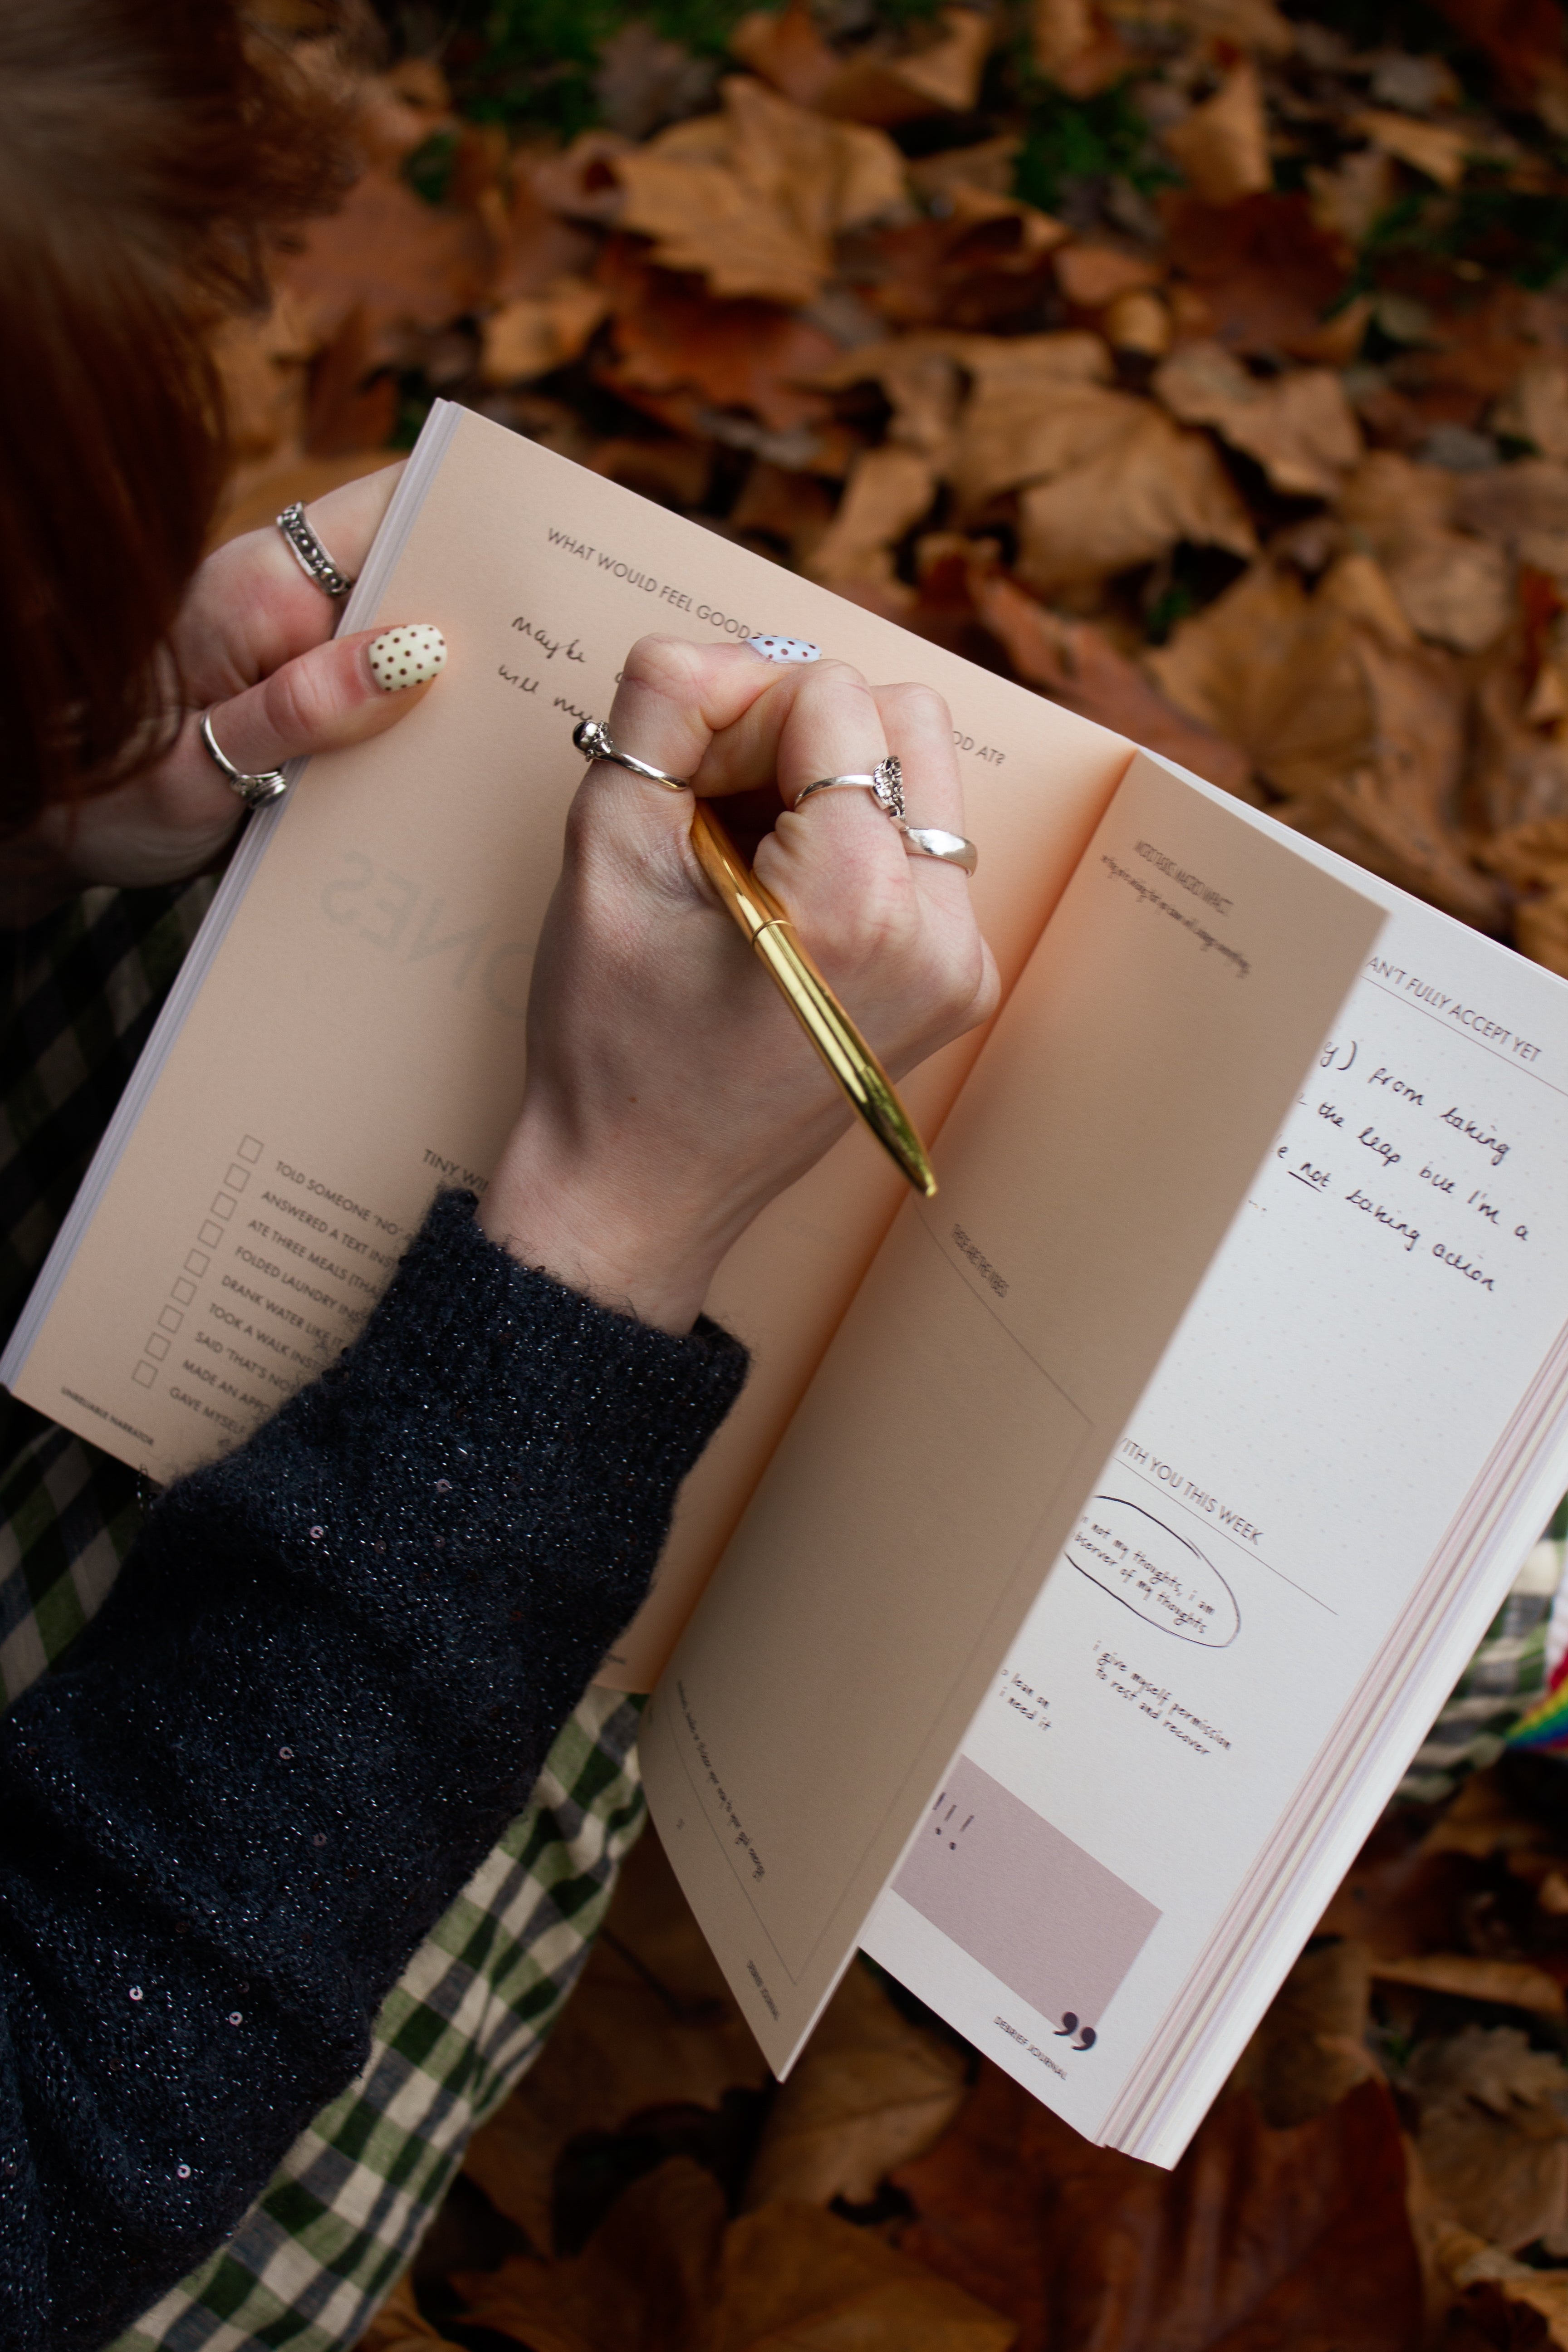 WHAT WOULD FEEL GOOD
OD AT?
maybe
will my
TINY WI
TOLD SOMEONE 'NO'
ANSWERED A TEXT INS
ATE THREE MEALS (THA
FOLDED LAUNDRY IN
DRANK WATER LIKE IT
TOOK A WALK INST
SAID 'THAT'S NO
MADE AN APPO
GAVE MYSELF
UNRELIABLE NARRATOR
AN'T FULLY ACCEPT YET
y) from taking
the leap but I'm a
e not taking action
WITH YOU THIS WEEK
not my thoughts, i am
bserver of my thoughts
i give myself permission
to rest and recover
lean on
i need it
!!!
”
DEBRIEF JOURNAL